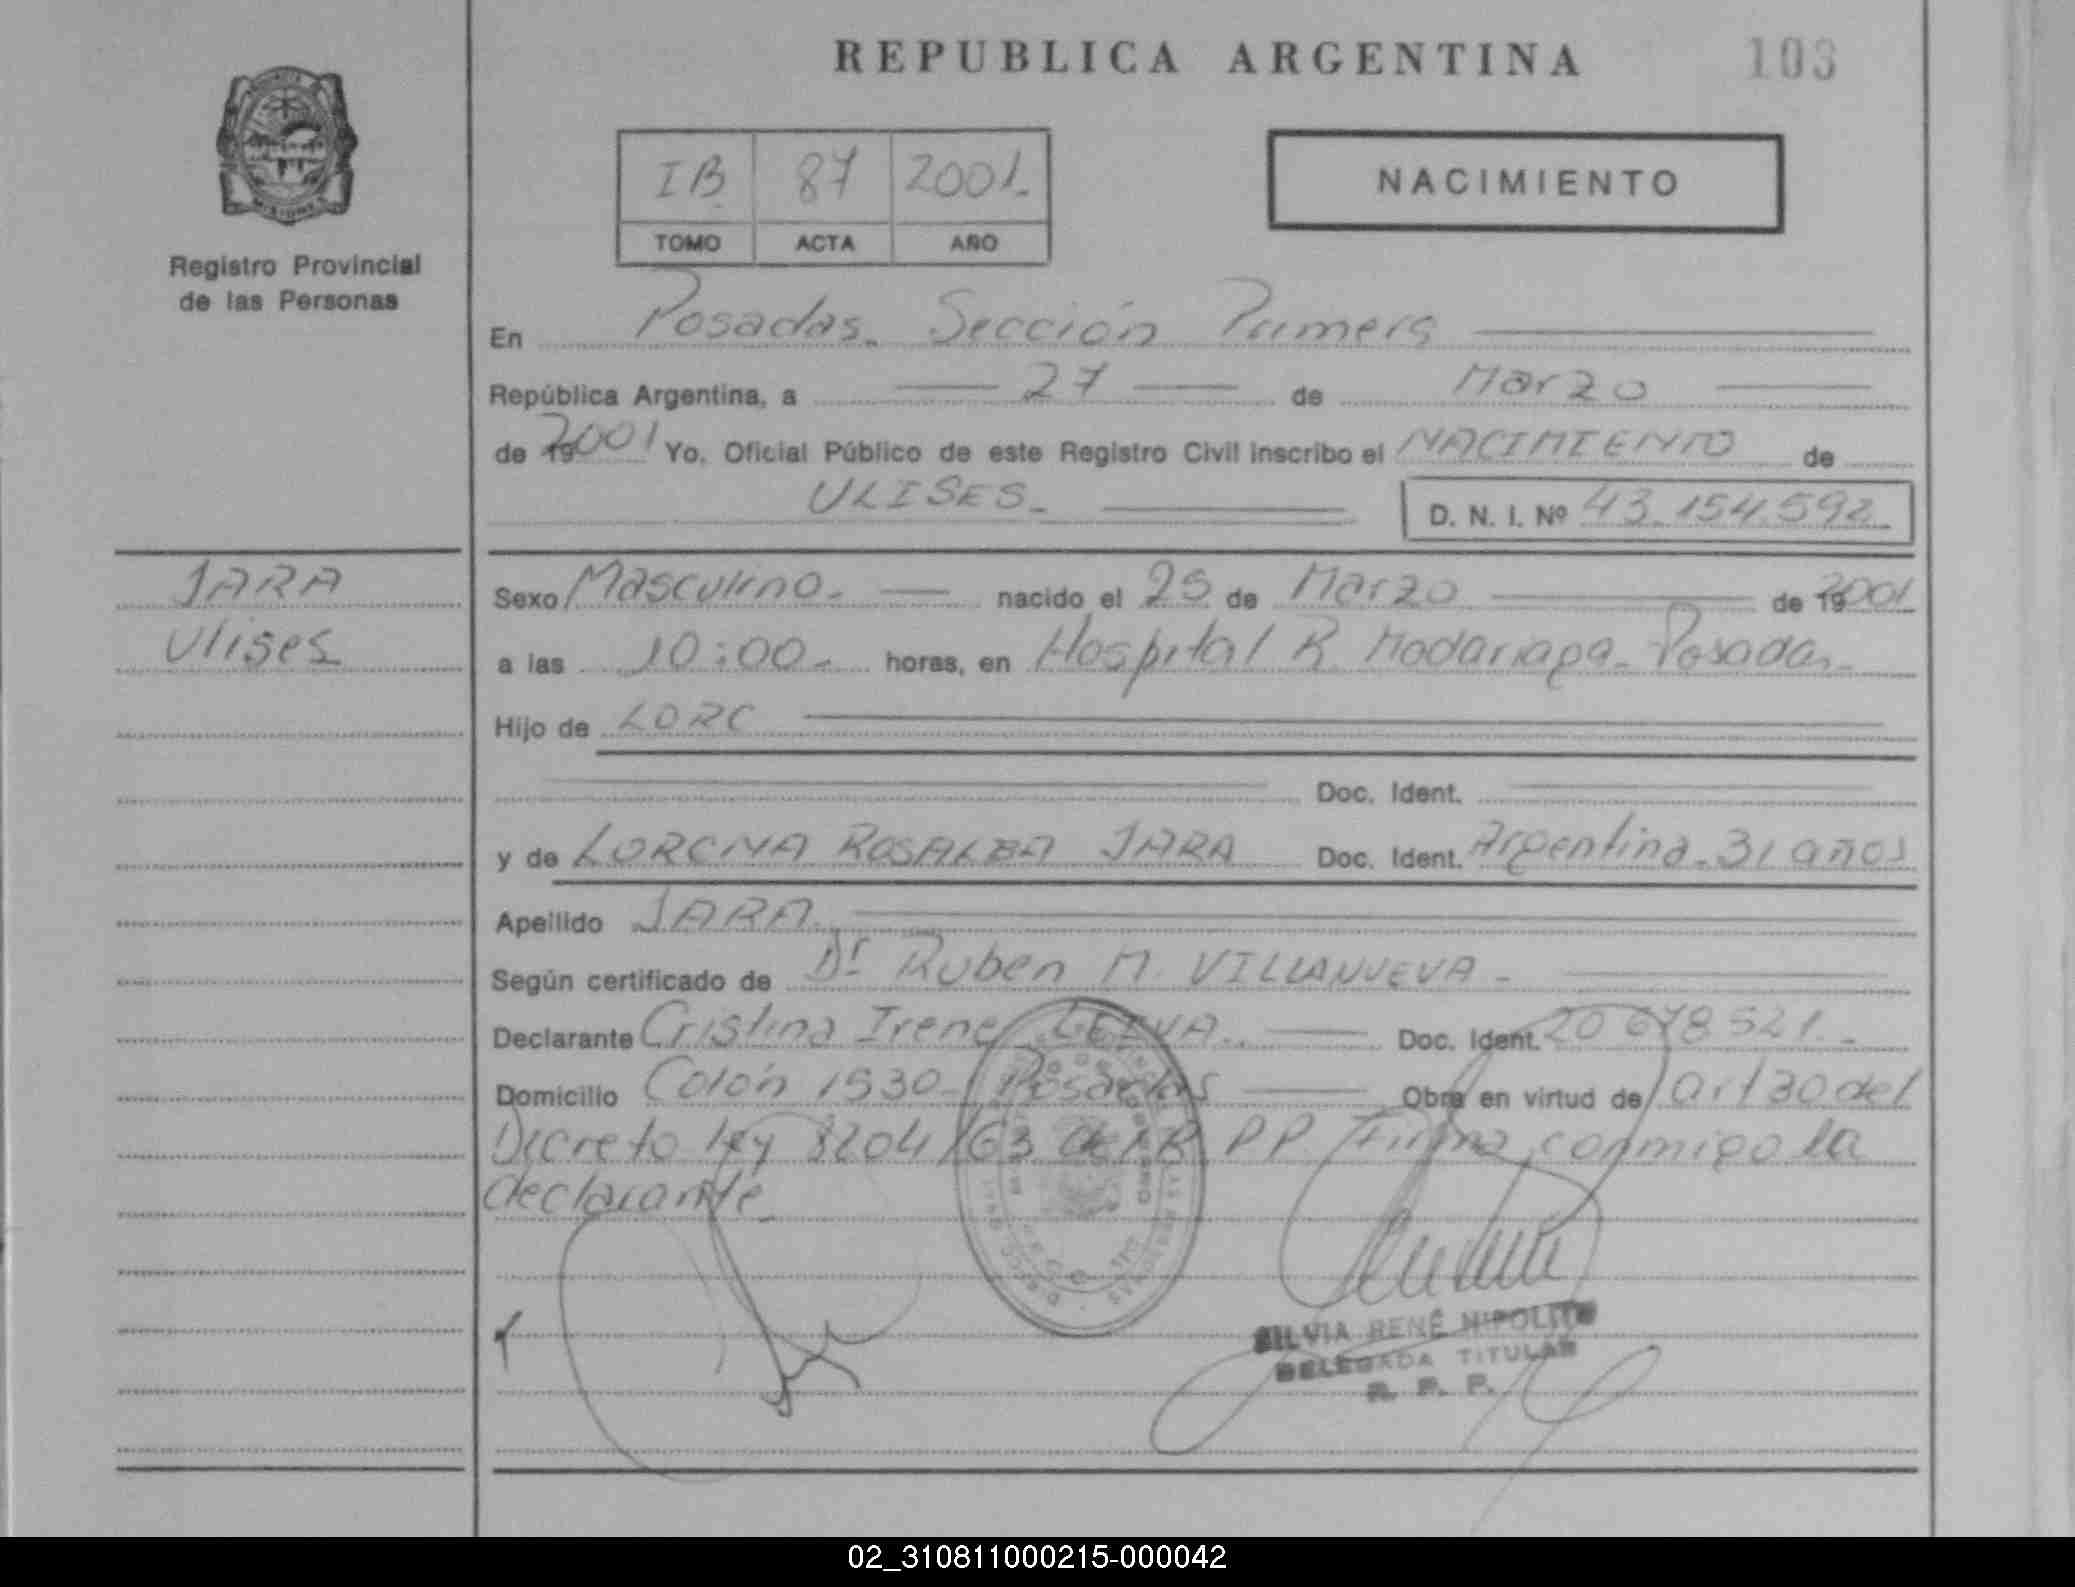 REPUBLICA ARGENTINA
103
IB 87 2001
TOMO ACTA AÑO
NACIMIENTO
MISIONES
Registro Provincial
de las Personas
En Posadas. Sección Primera
República Argentina, a 27 de Marzo
de 192001 Yo, Oficial Público de este Registro Civil inscribo el NACIMIENTO de
ULISES. D. N. I. Nº 43.154.592
JARA
Ulises
Sexo Masculino. nacido el 25 de Marzo de 192001
a las 10:00. horas, en Hospital R. Madariaga. Posadas.
Hijo de LORE
Doc. Ident.
y de LORENA ROSALBA JARA Doc. Ident. Argentina. 31 años
Apellido JARA.
Según certificado de Dr Ruben M. VILLANUEVA.
Declarante Cristina Irene LEIVA. Doc. Ident. 20 678 521.
Domicilio Colón 1530 Posadas Obra en virtud de art 30 del
Decreto ley 8204/63 del R.P.P. Firma conmigo la
declarante.
SILVIA RENÉ HIPOLITO
DELEGADA TITULAR
R. P. P.
02_310811000215-000042